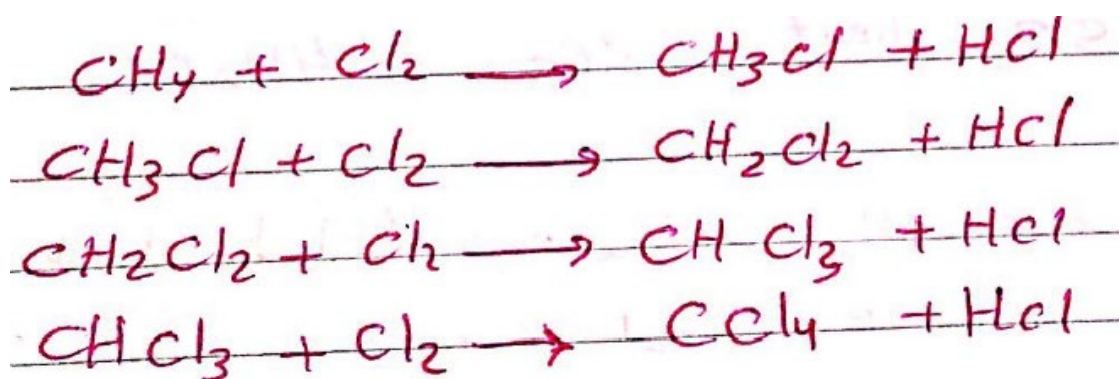 CH4 + Cl2 → CH3Cl + HCl
CH3Cl + Cl2 → CH2Cl2 + HCl
CH2Cl2 + Cl2 → CHCl3 + HCl
CHCl3 + Cl2 → CCl4 + HCl